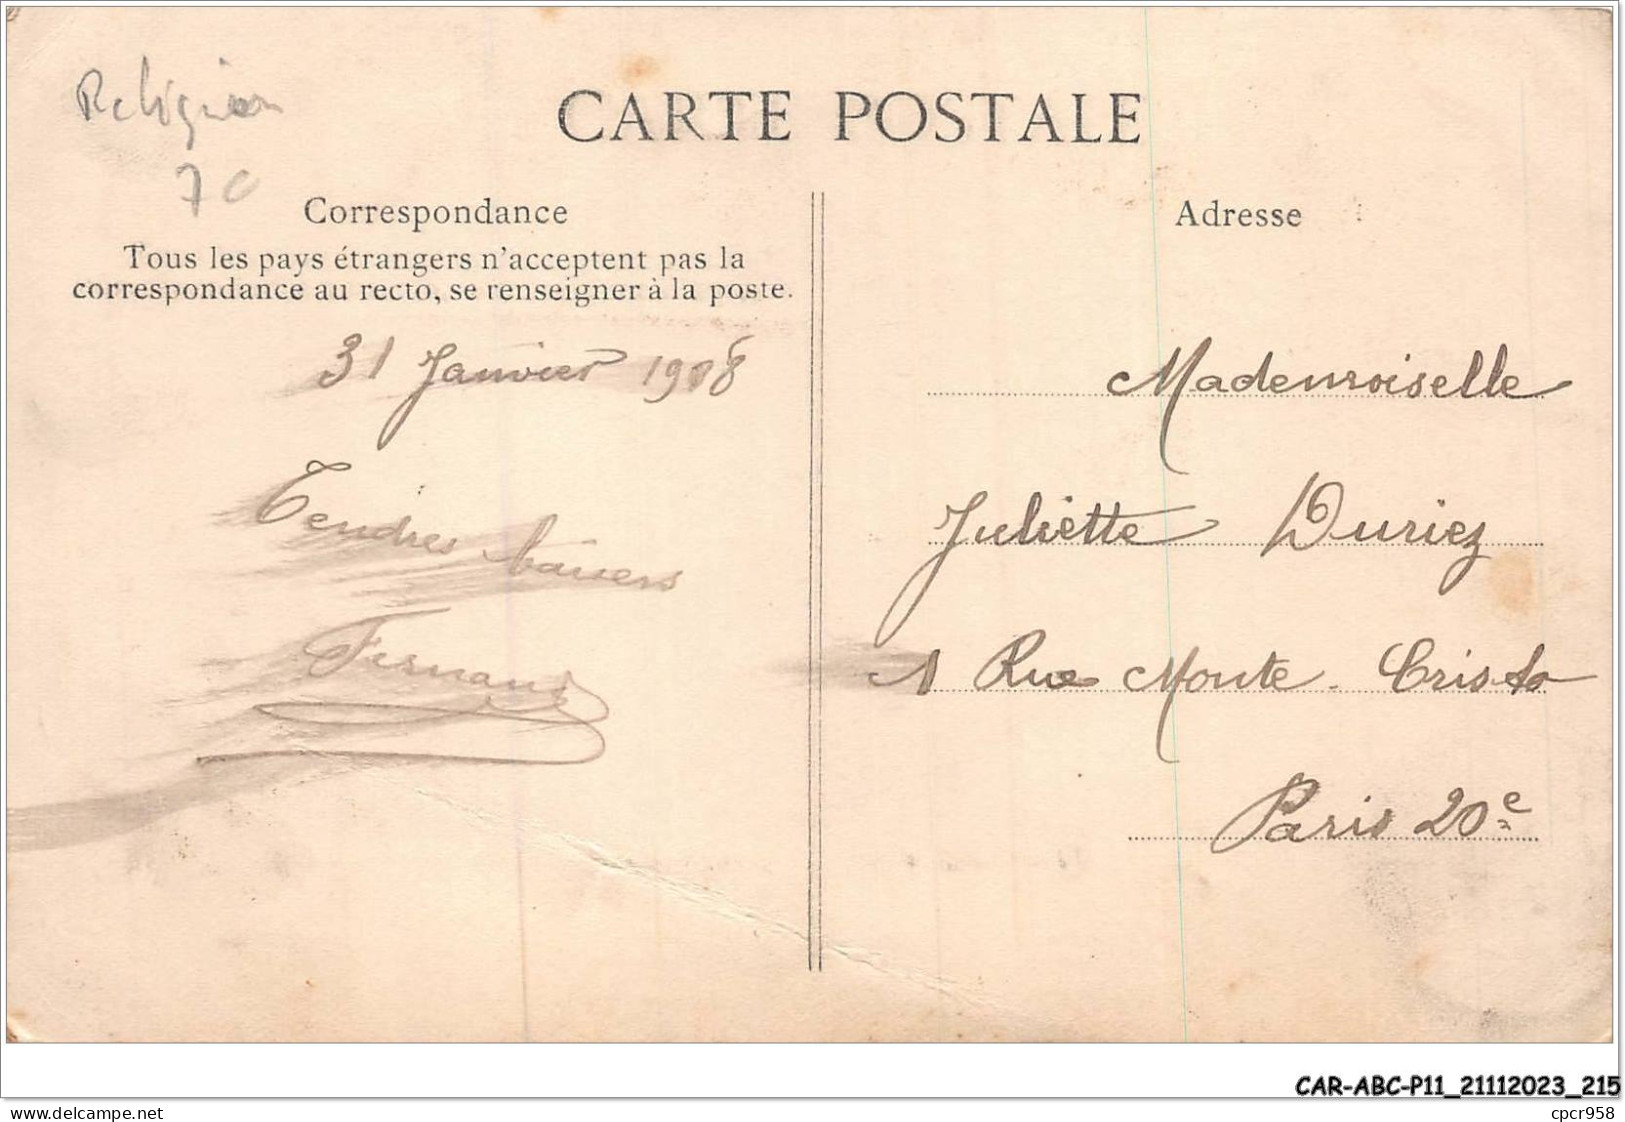 Religion
7C
CARTE POSTALE
Correspondance
Tous les pays étrangers n'acceptent pas la
correspondance au recto, se renseigner à la poste.
31 Janvier 1908
Tendres baisers
Fernand
Adresse
Mademoiselle
Juliette Duriez
1 Rue Monte-Cristo
Paris 20e
CAR-ABC-P11_21112023_215
www.delcampe.net
cpcr958